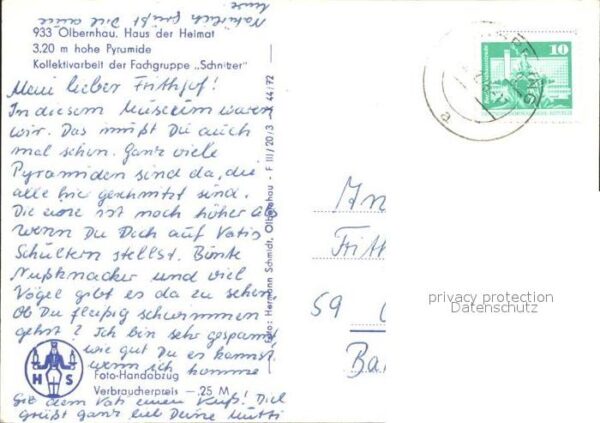 Natürlich grüßt Dich auch
933 Olbernhau. Haus der Heimat
3.20 m hohe Pyramide
Kollektivarbeit der Fachgruppe „Schnitzer"
Mein lieber Frithjof!
In diesem Museum waren
wir. Das mußt Du auch
mal sehen. Ganz viele
Pyramiden sind da, die
alle hier geschnitzt sind.
Die eine ist noch höher als
wenn Du Dich auf Vatis
Schultern stellst. Bunte
Nußknacker und viel
Vögel gibt es da zu sehen.
Ob Du fleißig schwimmen
gehst? Ich bin sehr gespannt,
wie gut Du es kannst,
wenn ich komme
Foto-Handabzug
Verbraucherpreis —,25 M
Gib dem Vati einen Kuß! Dich
grüßt ganz lieb Deine Mutti
H S
Foto: Hermann Schmidt, Olbernhau · F III/20/3 44/72
10
a
An
Frit
59
Ba
privacy protection
Datenschutz